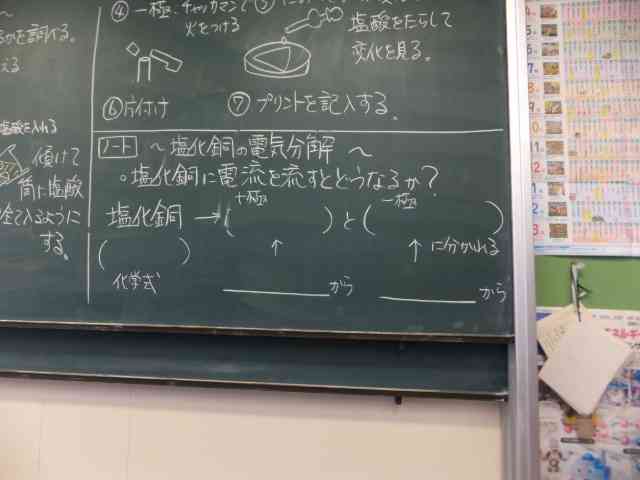 〜
を調べる。
える
塩酸を入れる
傾けて
筒に塩酸
入るように
する。
④ 一極、チャッカマンで
火をつける
⑤
塩酸をたらして
変化を見る。
⑥ 片付け
⑦ プリントを記入する。
ノート 〜塩化銅の電気分解〜
○塩化銅に電流を流すとどうなるか?
+極
一極
塩化銅 → ( ) と ( )
( )
↑
↑ に分かれる
化学式
から
から